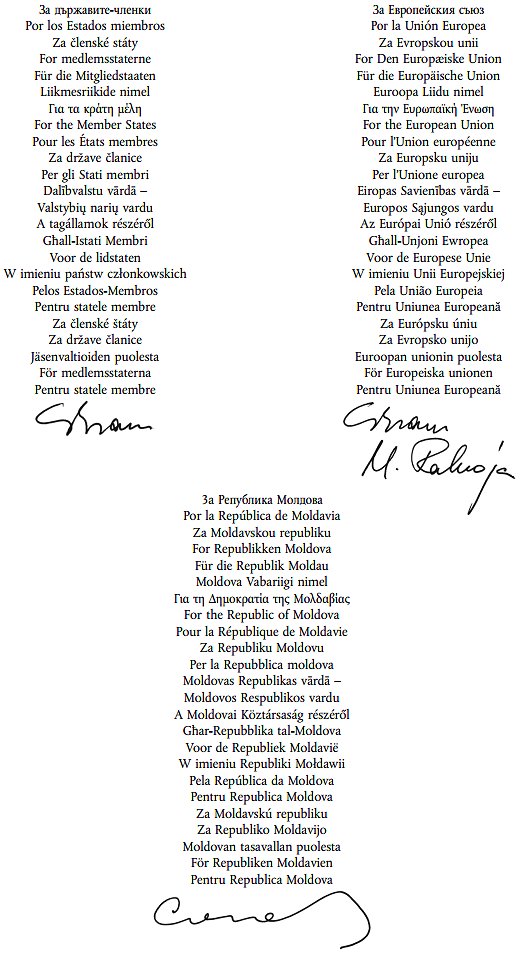 За държавите-членки
Por los Estados miembros
Za členské státy
For medlemsstaterne
Für die Mitgliedstaaten
Liikmesriikide nimel
Για τα κράτη μέλη
For the Member States
Pour les États membres
Za države članice
Per gli Stati membri
Dalībvalstu vārdā –
Valstybių narių vardu
A tagállamok részéről
Għall-Istati Membri
Voor de lidstaten
W imieniu państw członkowskich
Pelos Estados-Membros
Pentru statele membre
Za členské štáty
Za države članice
Jäsenvaltioiden puolesta
För medlemsstaterna
Pentru statele membre
За Европейския съюз
Por la Unión Europea
Za Evropskou unii
For Den Europæiske Union
Für die Europäische Union
Euroopa Liidu nimel
Για την Ευρωπαϊκή Ένωση
For the European Union
Pour l'Union européenne
Za Europsku uniju
Per l'Unione europea
Eiropas Savienības vārdā –
Europos Sąjungos vardu
Az Európai Unió részéről
Għall-Unjoni Ewropea
Voor de Europese Unie
W imieniu Unii Europejskiej
Pela União Europeia
Pentru Uniunea Europeană
Za Európsku úniu
Za Evropsko unijo
Euroopan unionin puolesta
För Europeiska unionen
Pentru Uniunea Europeană
M.
За Република Молдова
Por la República de Moldavia
Za Moldavskou republiku
For Republikken Moldova
Für die Republik Moldau
Moldova Vabariigi nimel
Για τη Δημοκρατία της Μολδαβίας
For the Republic of Moldova
Pour la République de Moldavie
Za Republiku Moldovu
Per la Repubblica moldova
Moldovas Republikas vārdā –
Moldovos Respublikos vardu
A Moldovai Köztársaság részéről
Għar-Repubblika tal-Moldova
Voor de Republiek Moldavië
W imieniu Republiki Mołdawii
Pela República da Moldova
Pentru Republica Moldova
Za Moldavskú republiku
Za Republiko Moldavijo
Moldovan tasavallan puolesta
För Republiken Moldavien
Pentru Republica Moldova